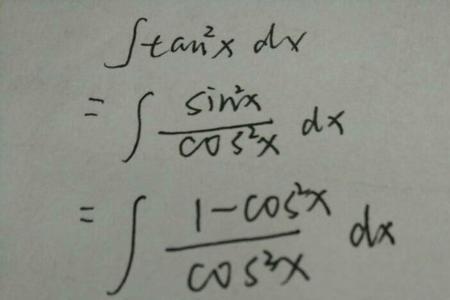 ∫tan²x dx
= ∫ sin²x/cos²x dx
= ∫ 1-cos²x/cos²x dx